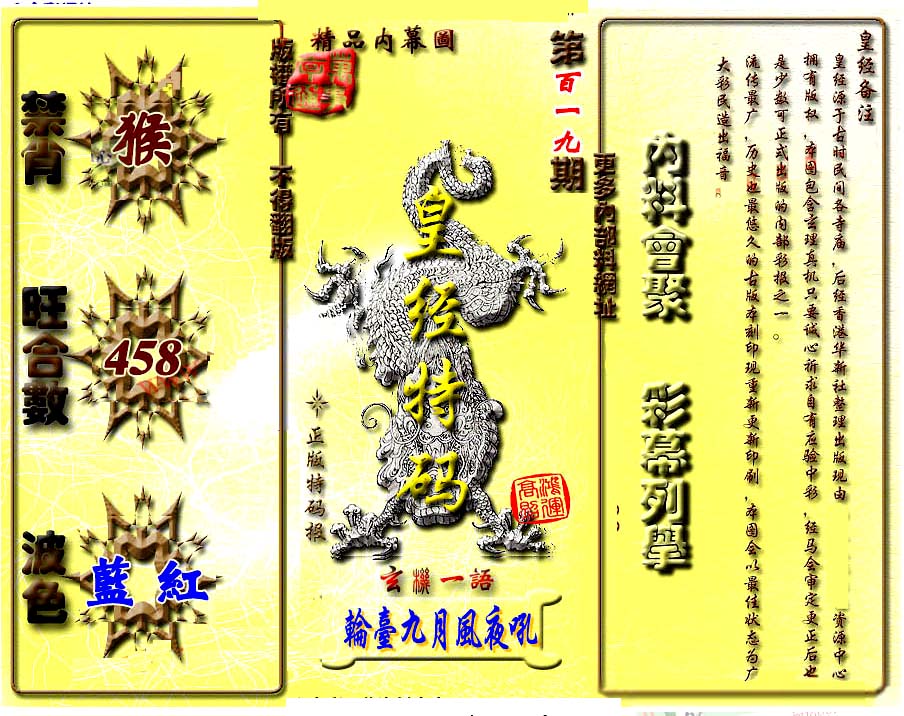 精品内幕圖
第百一九期
版權所有 不得翻版
更多內部料網址
禁肖
猴
旺合數
458
波色
藍 紅
皇经特码
正版特码报
鴻運高照
玄機一語
輪臺九月風夜吼
內料會聚 彩幕列舉
皇经备注
皇经源于古时民间各寺庙，后经香港华新社整理出版现由 资源中心
拥有版权，本图包含玄理真机只要诚心祈求自有应验中彩，经马会审定更正后也
是少数可正式出版的内部彩报之一。
流传最广，历史也最悠久的古版本刻印现重新更新印刷，本图会以最佳状态为广
大彩民造出福音。